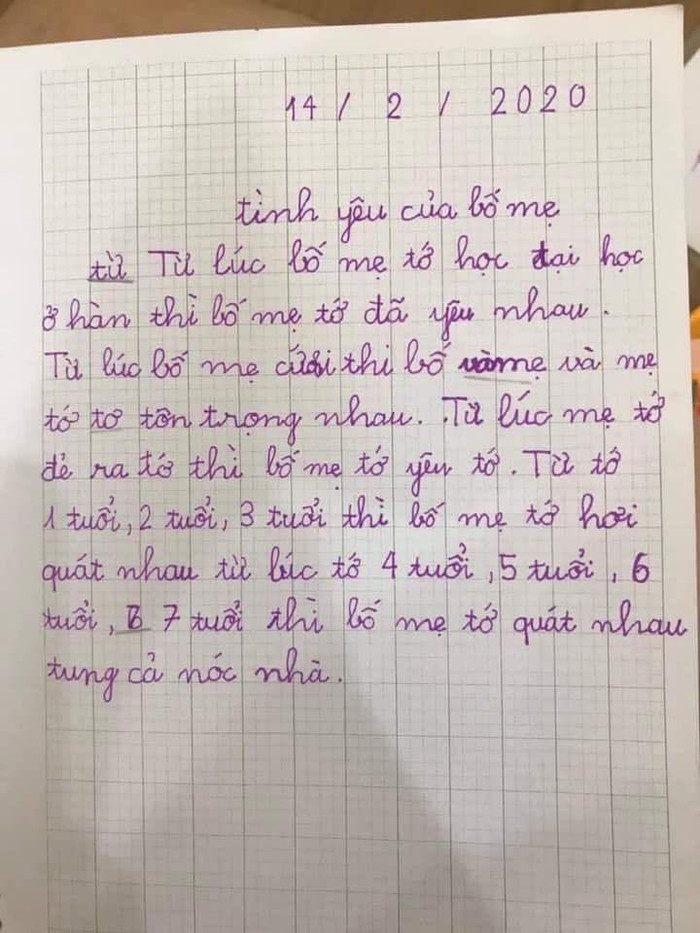 14 / 2 / 2020
tình yêu của bố mẹ
từ Từ lúc bố mẹ tớ học đại học
ở hàn thì bố mẹ tớ đã yêu nhau.
Từ lúc bố mẹ cưới thì bố và mẹ và mẹ
tớ tơ tôn trọng nhau. Từ lúc mẹ tớ
đẻ ra tớ thì bố mẹ tớ yêu tớ. Từ tớ
1 tuổi, 2 tuổi, 3 tuổi thì bố mẹ tớ hơi
quát nhau từ lúc tớ 4 tuổi, 5 tuổi, 6
tuổi, 7 tuổi thì bố mẹ tớ quát nhau
tung cả nóc nhà.